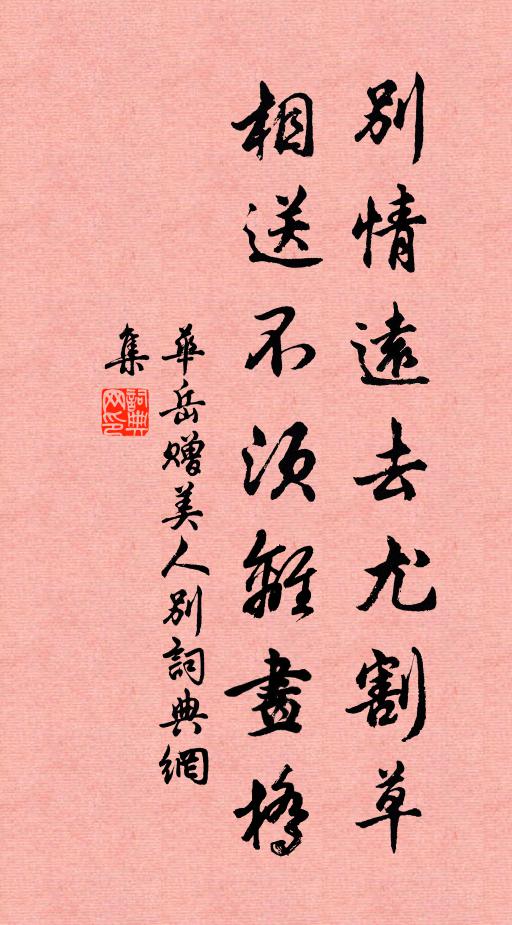 別情遠去尤割草
相送不須離畫橋
華岳贈美人別詞典網
集
詞典
网印